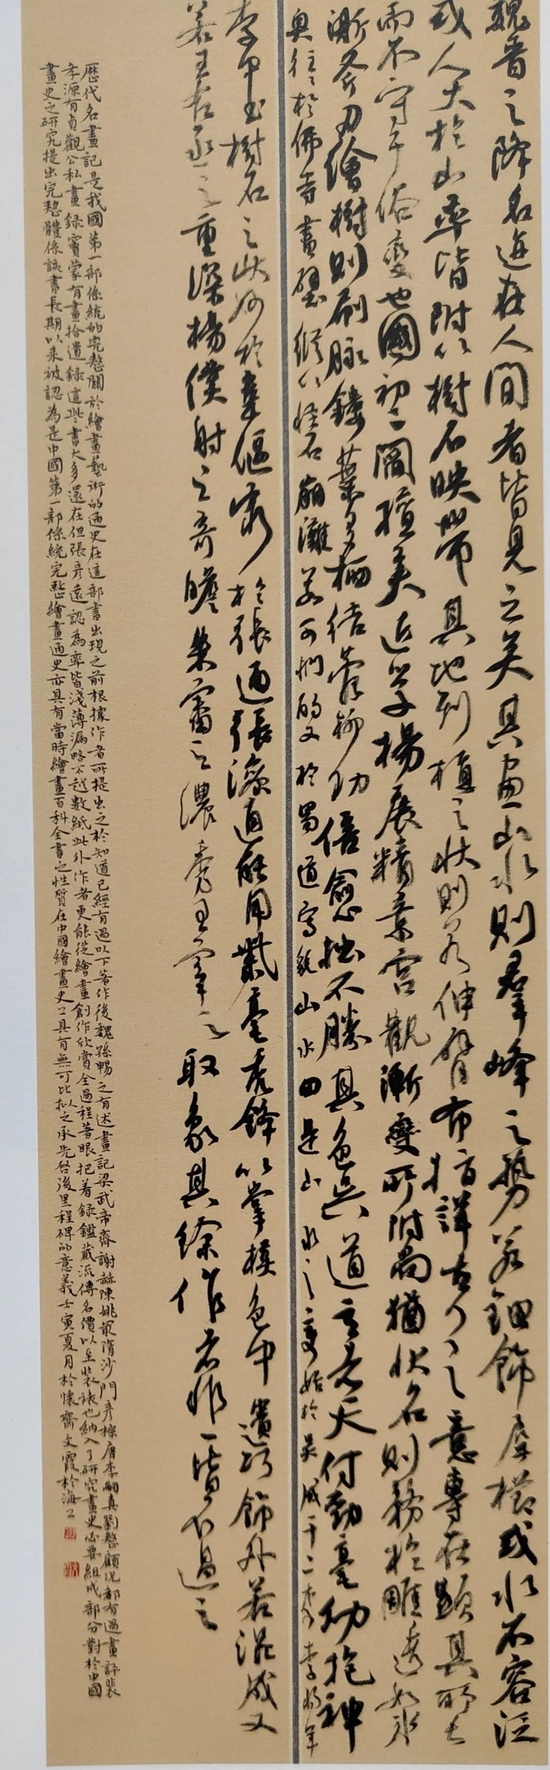 魏晉之降名迹在人間者皆見之矣其畫山水則羣峰之勢若鈿飾犀櫛或水不容泛
或人大於山率皆附以樹石映帶其地列植之狀則若伸臂布指詳古人之意專在顯其所長
而不守于俗變也國初二閻擅美近學楊展精意宮觀漸變所附尚猶狀石則務於雕透如冰
澌斧刃繪樹則刷脉鏤葉多栖梧菀柳功倍愈拙不勝其色吳道玄者天付勁毫幼抱神
奧往往於佛寺畫壁縱以怪石崩灘若可捫酌又於蜀道寫貌山水由是山水之變始於吳成于二李李將軍
李中書樹石之狀妙於韋偃窮於張通張璪通能用紫毫禿鋒以掌摸色中遺巧飾外若混成又
若王右丞之重深楊僕射之奇贍朱審之濃秀王宰之取象其餘作者非一皆不過之
歷代名畫記是我國第一部係統的完整關於繪畫藝術的通史在這部書出現之前根據作者所提出之於知道已經有過以下著作後魏孫暢之有述畫記梁武帝齊謝赫陳姚最隋沙門彥悰唐李嗣真劉整顧況都有過畫評裴
孝源有貞觀公私畫録竇蒙有畫拾遺録這些書大多還在但張彥遠認為率皆淺薄漏略不越數紙此外作者更能從繪畫創作欣賞全過程著眼把著録鑑藏流傳名價以至裝裱也納入了研究畫史必要組成部分對於中國
畫史之研究提出完整體係該書長期以來被認為是中國第一部係統完整繪畫通史亦具有當時繪畫百科全書之性質在中國繪畫史上具有無可比拟之承先啓後里程碑的意義壬寅夏月於懷齋文霞於海上